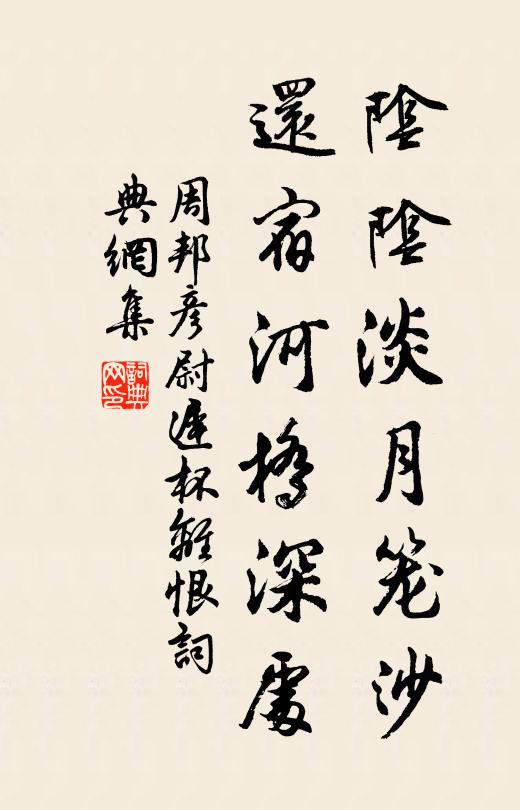 陰陰淡月笼沙
還宿河橋深處
周邦彦尉遲杯離恨詞
典網集
詞典网印